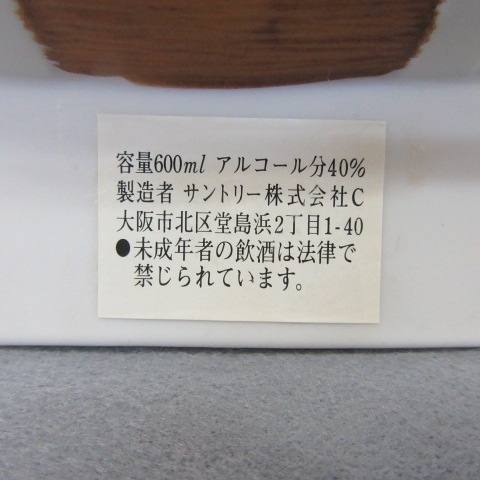 容量600ml アルコール分40%
製造者 サントリー株式会社C
大阪市北区堂島浜2丁目1-40
●未成年者の飲酒は法律で
禁じられています。